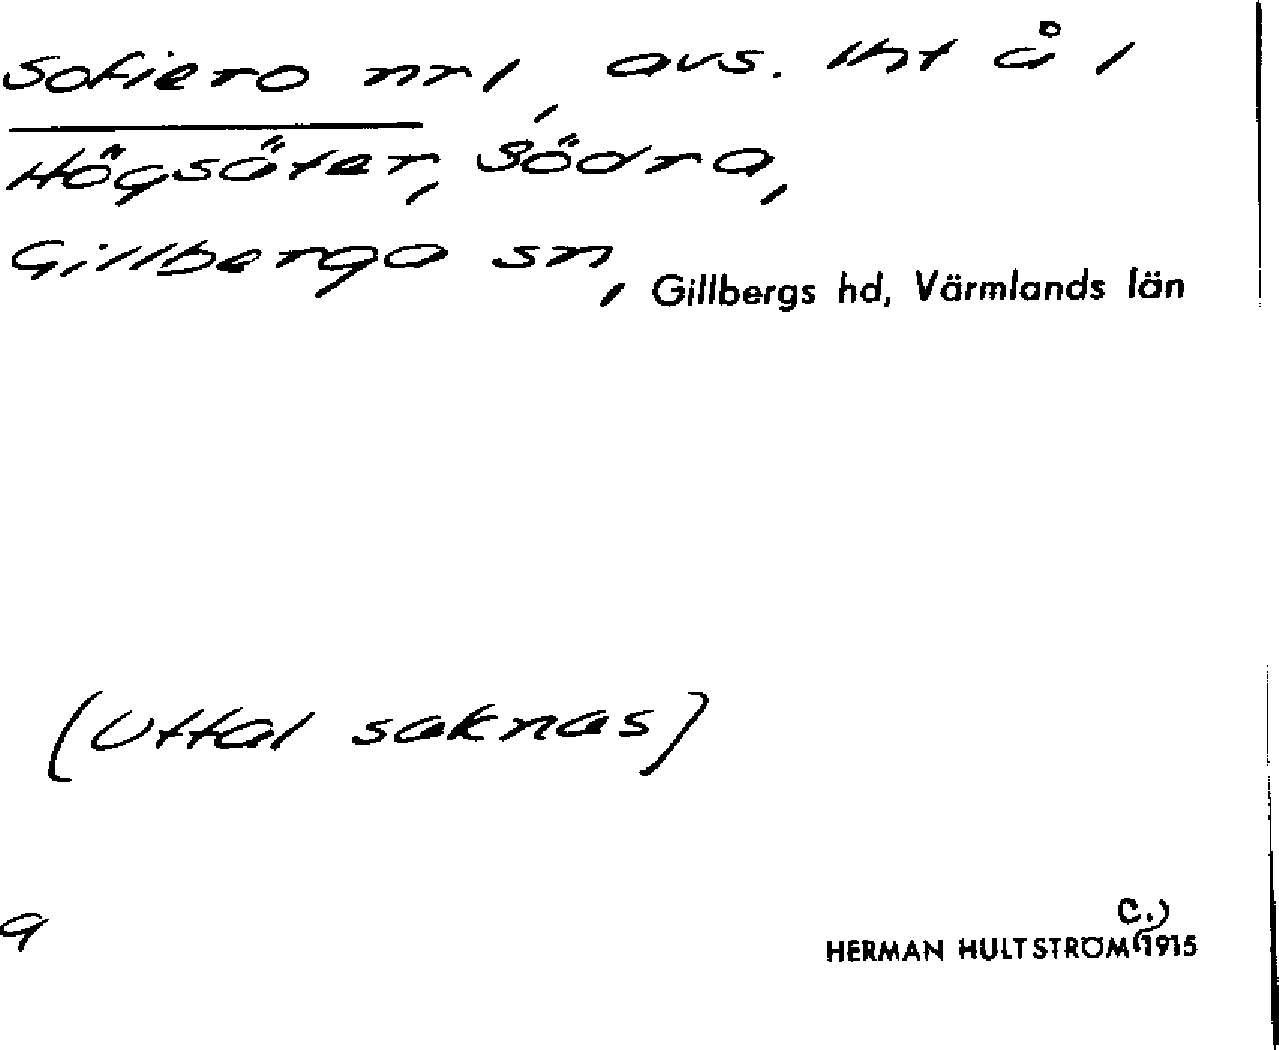 Sofiero nr 1, avs. lht å 1
Högsäter, Södra,
Gillberga sn, Gillbergs hd, Värmlands län
(Uttal saknas)
9
HERMAN HULTSTRÖM C.) 1915